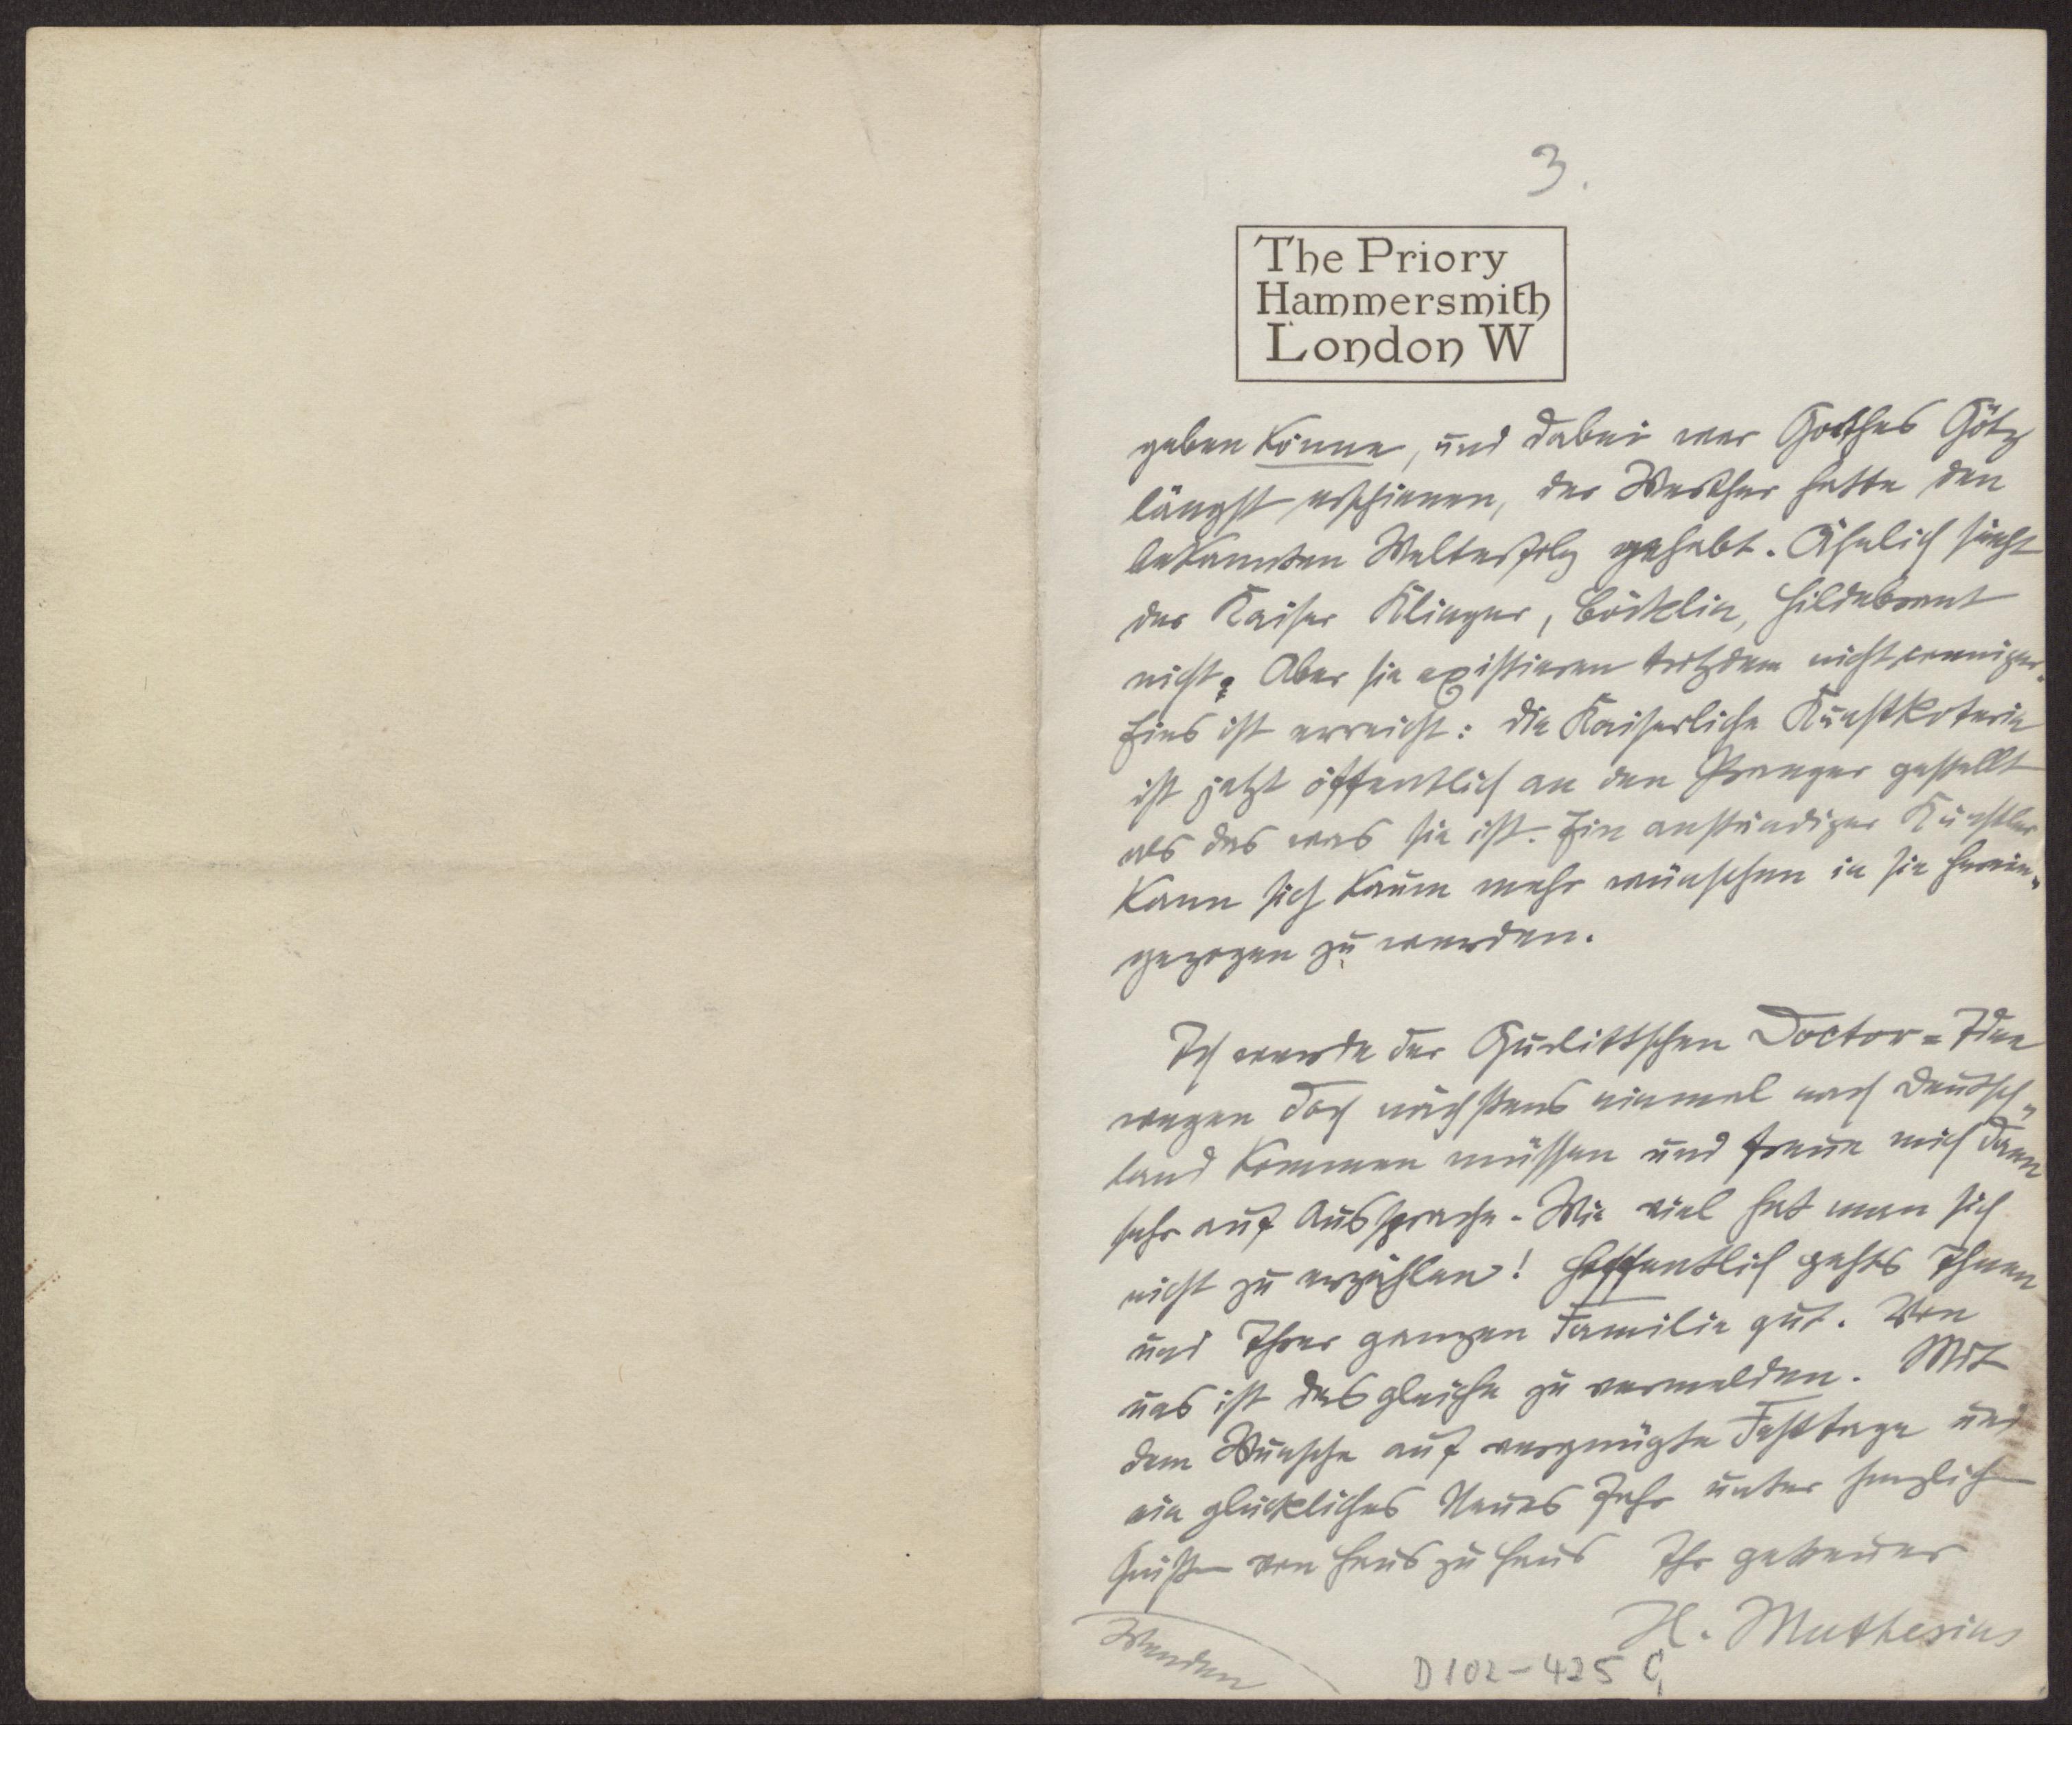 3.
The Priory
Hammersmith
London W
geben könne, und dabei war Goethes Götz
längst erschienen, der Werther hatte den
bekannten Welterfolg gehabt. Ähnlich sieht
der Kaiser Klinger, Böcklin, Hildebrant
nicht. Aber sie existieren trotzdem nicht weniger.
Eins ist erreicht: die Kaiserliche Kunstkoterie
ist jetzt öffentlich an den Pranger gestellt
als das was sie ist. Ein anständiger Künstler
kann sich kaum mehr wünschen in sie herein-
gezogen zu werden.
Ich werde der Gurlittschen Doctor=Idee
wegen doch nächstens einmal nach Deutsch-
land kommen müssen und freue mich dann
sehr auf Aussprache. Wie viel hat man sich
nicht zu erzählen! Hoffentlich gehts Ihnen
und Ihrer ganzen Familie gut. Von
uns ist das gleiche zu vermelden. Mit
dem Wunsche auf vergnügte Festtage und
ein glückliches Neues Jahr unter herzlichen
Grüßen von Haus zu Haus Ihr getreuer
H. Muthesius
Wenden
D102-425